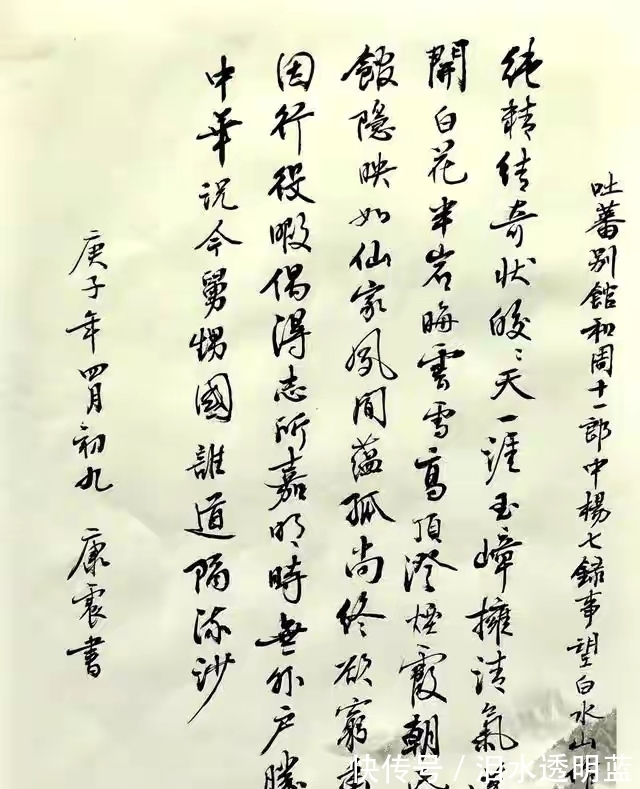 吐蕃别館和周十一郎中楊七録事望白水山
純精结奇状皎〻天一涯玉嶂擁清氣
開白花半岩晦雲雪高頂澄煙霞朝
館隐映如仙家夙闻蕴孤尚终欲窮
因行役暇偶得志所嘉明時無外户勝
中華况今舅甥國誰道隔流沙
庚子年四月初九 康震書
快传号/泪水透明蓝